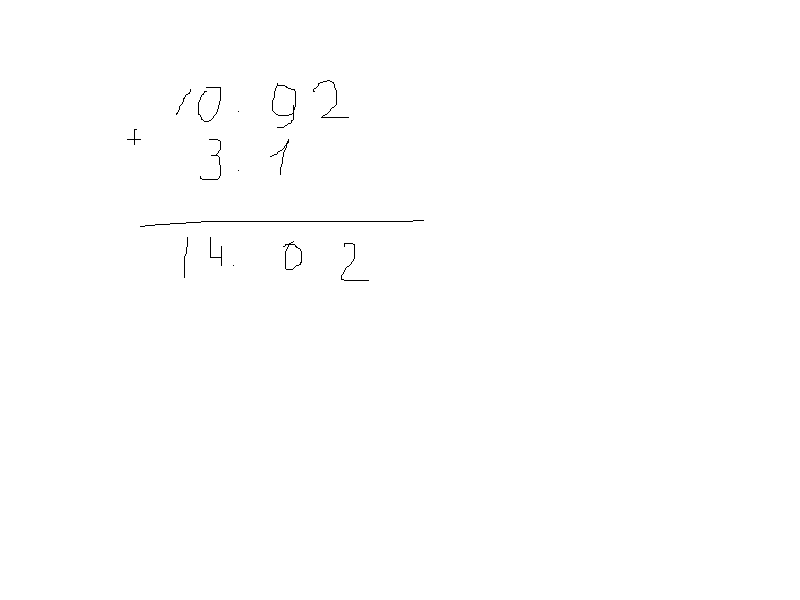 10.92
+
3.1
14.02